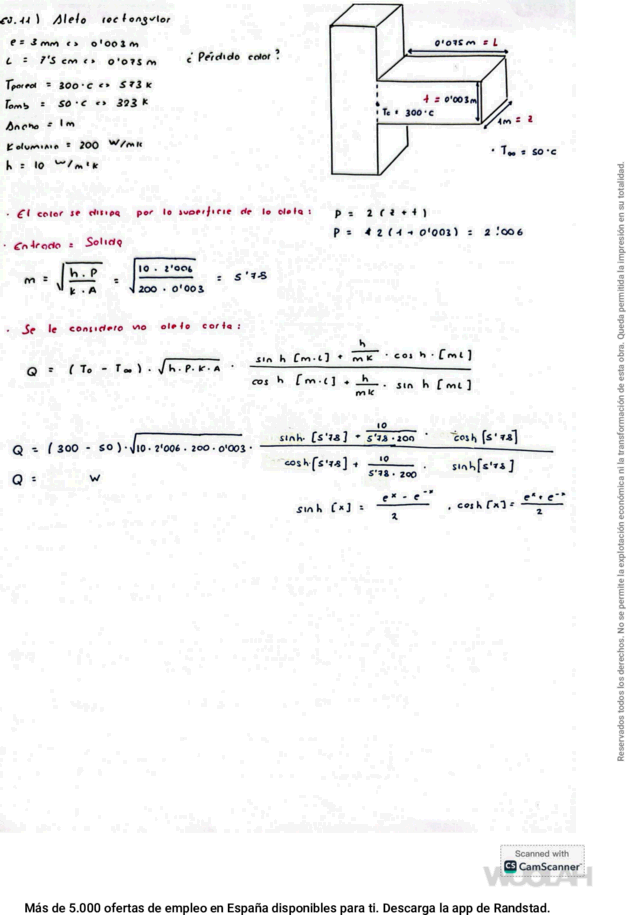 ej. 11) Aleta rectangular
e = 3 mm <> 0'003 m
L = 7'5 cm <> 0'075 m
¿Pérdida calor?
Tpared = 300 °C <> 573 K
Tamb = 50 °C <> 323 K
Ancho = 1m
Kaluminio = 200 W/mK
h = 10 W/m²K
0'075 m = L
t = 0'003m
To = 300 °C
1m = z
· T∞ = 50 °C
· El calor se disipa por la superficie de la aleta:
P = 2 (z + t)
P = 2 (1 + 0'003) = 2'006
· Entrada = Salida
m = √(h · P / K · A) = √(10 · 2'006 / 200 · 0'003) = 5'78
· Se le considera una aleta corta:
Q = (To - T∞) · √(h · P · K · A) · (sin h [m·L] + h/mK · cos h · [mL]) / (cos h [m·L] + h/mK · sin h [mL])
Q = (300 - 50) · √(10 · 2'006 · 200 · 0'003) · (sinh · [5'78] + 10/5'78 · 200 · cosh [5'78]) / (cosh · [5'78] + 10/5'78 · 200 · sinh [5'78])
Q = W
sinh [x] = (e^x - e^-x)/2 , cosh [x] = (e^x + e^-x)/2
Reservados todos los derechos. No se permite la explotación económica ni la transformación de esta obra. Queda permitida la impresión en su totalidad.
Scanned with
CS CamScanner
WUOLAH
Más de 5.000 ofertas de empleo en España disponibles para ti. Descarga la app de Randstad.